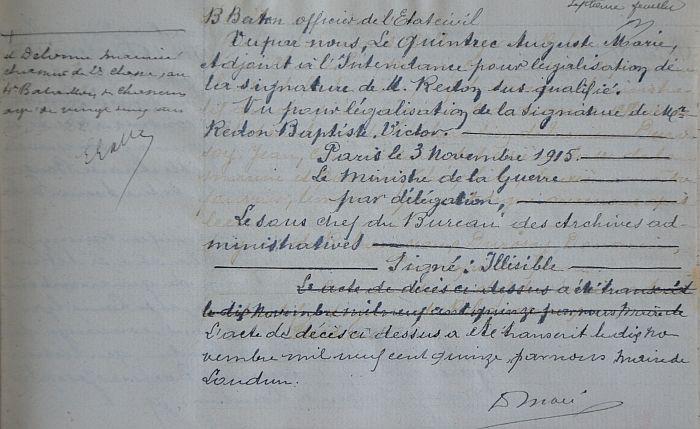 B Berton officier de l'Etat civil
Septième feuillet
Vu par nous, Le Quintrec Auguste Marie,
Adjoint à l'Intendance pour légalisation de
la signature de M. Redon sus qualifié.
Vu pour légalisation de la signature de
Redon Baptiste Victor.
Paris le 3 Novembre 1915.
Le Ministre de la Guerre
par délégation,
Le sous chef du Bureau des Archives ad-
ministratives
Signé: Illisible
Le acte de décès ci dessus a été transcrit
le dix Novembre mil neuf cent quinze par nous Maire de
L'acte de décès ci dessus a été transcrit le dix no
vembre mil neuf cent quinze par nous Maire de
Loudun.
et
chasseur de 2e Classe, au
Bataillon de Chasseurs
agé de vingt cinq ans